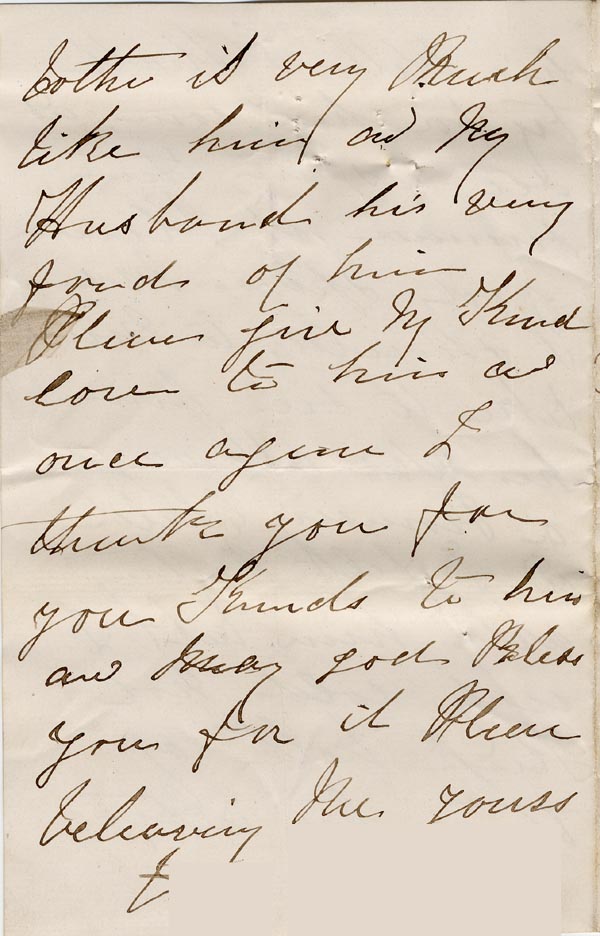 is very Much
like him and My
Husband his very
fonds of him
Pleas give My Kind
love to him and
once agene I
thank you for
you Kinds to him
and May god Bless
you for it Pleas
beleaving Me yours